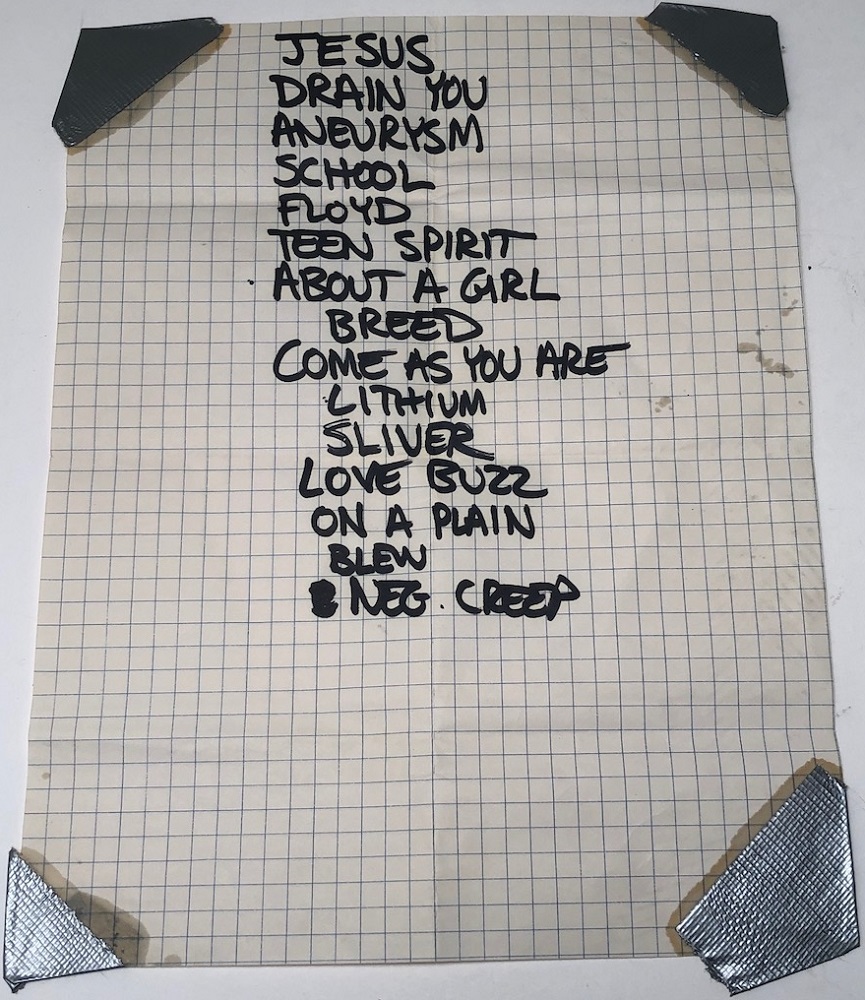 JESUS
DRAIN YOU
ANEURYSM
SCHOOL
FLOYD
TEEN SPIRIT
ABOUT A GIRL
BREED
COME AS YOU ARE
LITHIUM
SLIVER
LOVE BUZZ
ON A PLAIN
BLEW
NEG. CREEP